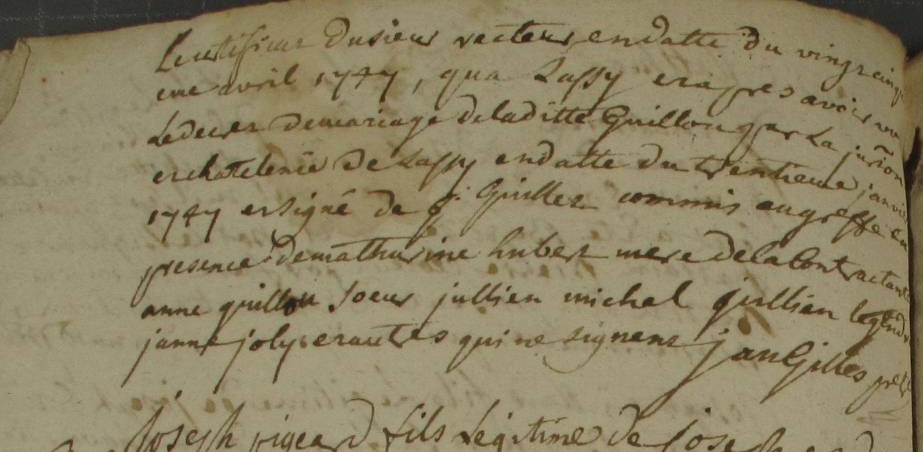 Le certificat du sieur recteur en datte du vingt cinq
eme avril 1747, qua Lassy et apres avoir vu
Le decret de mariage de laditte Guillou par La jurion
et chatelenie de Lassy en datte du trentieme janvier
1747 et signé de j. Guillet commis au greffe en
presence de mathurine huber mere de la Contractante
anne guillou Soeur jullien michel jullien legend
janne joly et autres qui ne signent jan Gilles ptre
Joseph pigeard fils Legitime de Joseph